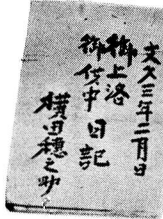 文久三年二月日
御上洛
御供中日記
横田穂之助